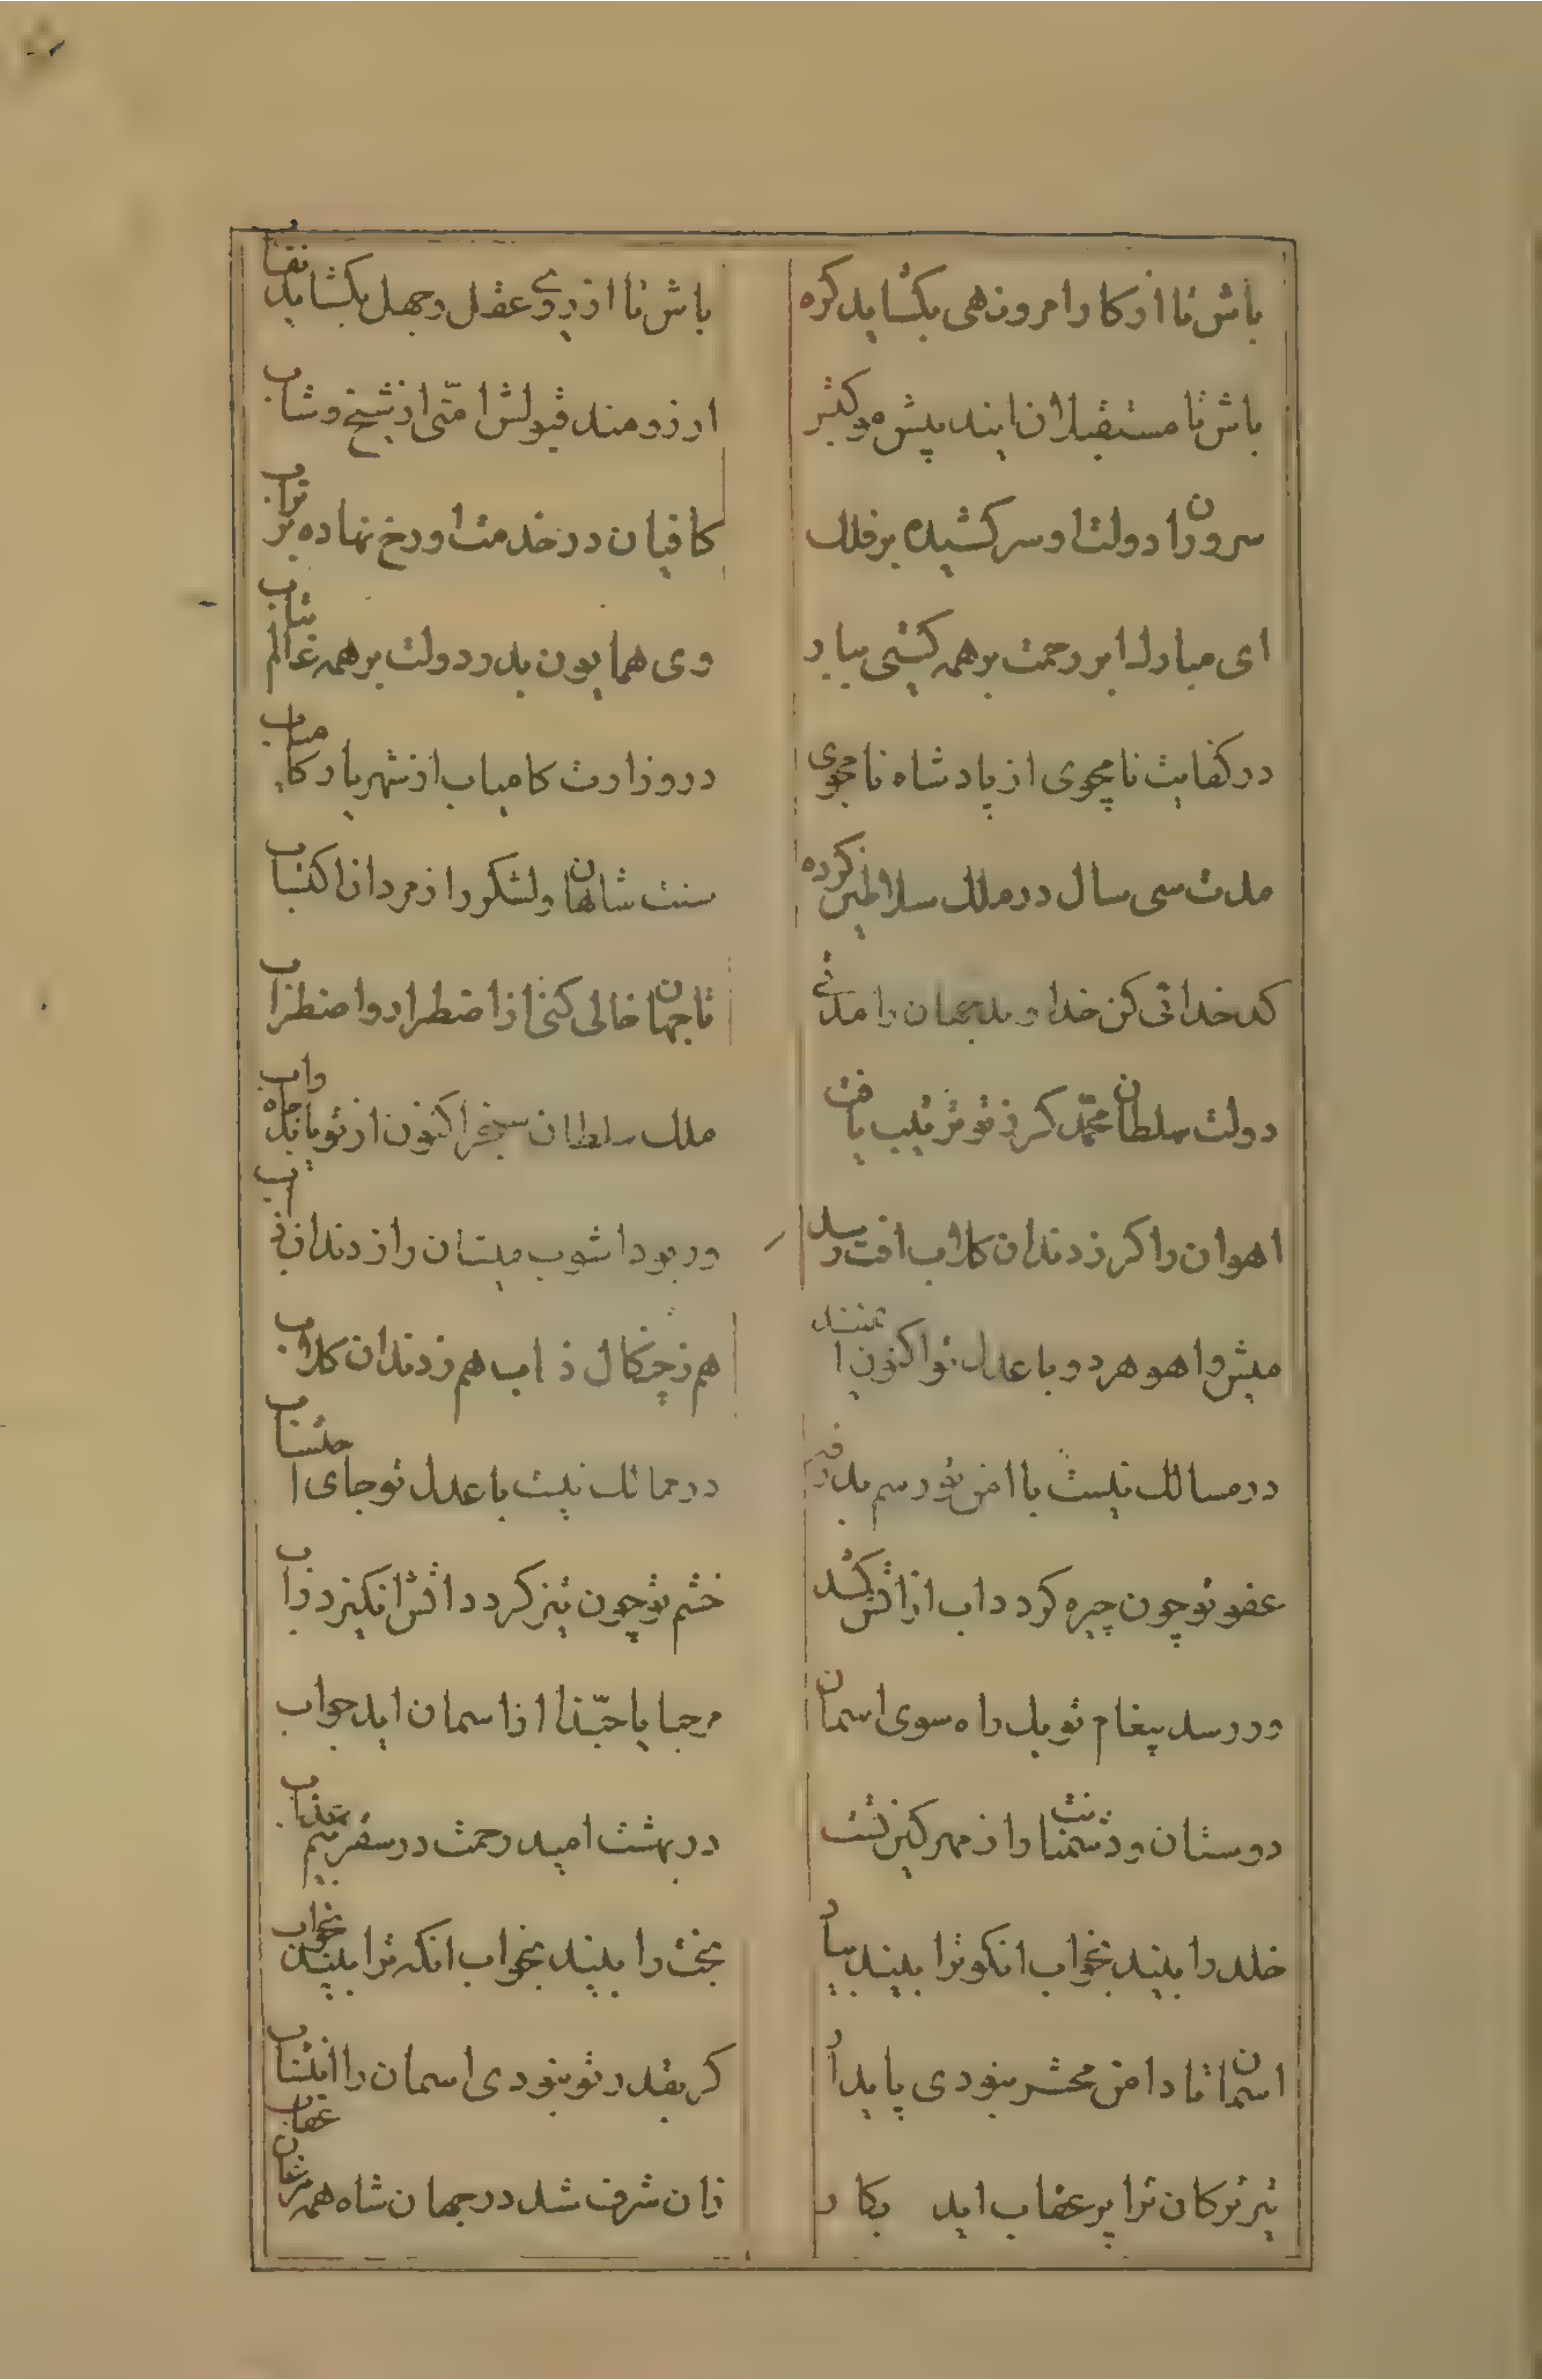 باش تا از کار امر و نهی بکشاید کره
باش تا از روی عقل و جهل بکشاید نقاب
باش تا مستقبلان ایند پیش موکبش
ارزومند قبولش امتی از شیخ و شاب
سروران را دولت او سر کشیده بر فلک
کافیان در خدمت او رخ نهاده بر تراب
ای مبارک ابر رحمت بر همه کیتی ببار
وی همایون بدر دولت بر همه عالم بتاب
در کفایت نامجوی از پادشاه نامجوی
در وزارت کامیاب از شهریار کامیاب
مدت سی سال در ملک سلاطین کرده
سنت شاهان و لشکر را ز مردان اکتساب
کدخدائی کن خداوند جهان را مدتی
تا جهان خالی کنی از اضطرار و اضطراب
دولت سلطان محمد کر ز تو ترتیب یافت
ملک سلطان سنجر اکنون از تو یابد جاه و اب
اهوان را کر ز دندان کلاب افت رسد
ور بود اشوب میشان را ز دندان ذیاب
میش و اهو هر دو با عدل تو اکنون ایمنند
هم ز چنکال ذیاب هم ز دندان کلاب
در مسالک نیست با امن تو رسم بدرقه
در ممالک نیست با عدل تو جای احتساب
عفو تو چون چیره کردد اب از اتش کشد
خشم تو چون تیز کردد اتش انکیزد ز اب
ور رسد پیغام تو یک راه سوی اسمان
مرحبا یا حبذا از اسمان اید جواب
دوستان و دشمنان را ز مهر کینت
در بهشت امید رحمت در سقر بیم عذاب
خلد را بیند بخواب انکو ترا بیند بیاد
بخت را بیند بخواب انکه ترا بیند بخواب
اسمان تا دامن محشر بنودی پایدار
کر بقدر تو بنودی اسمان را انتساب
تیر ترکان ترا پر عقاب اید بکار
زان شرف شد در جهان شاه همه مرغان عقاب